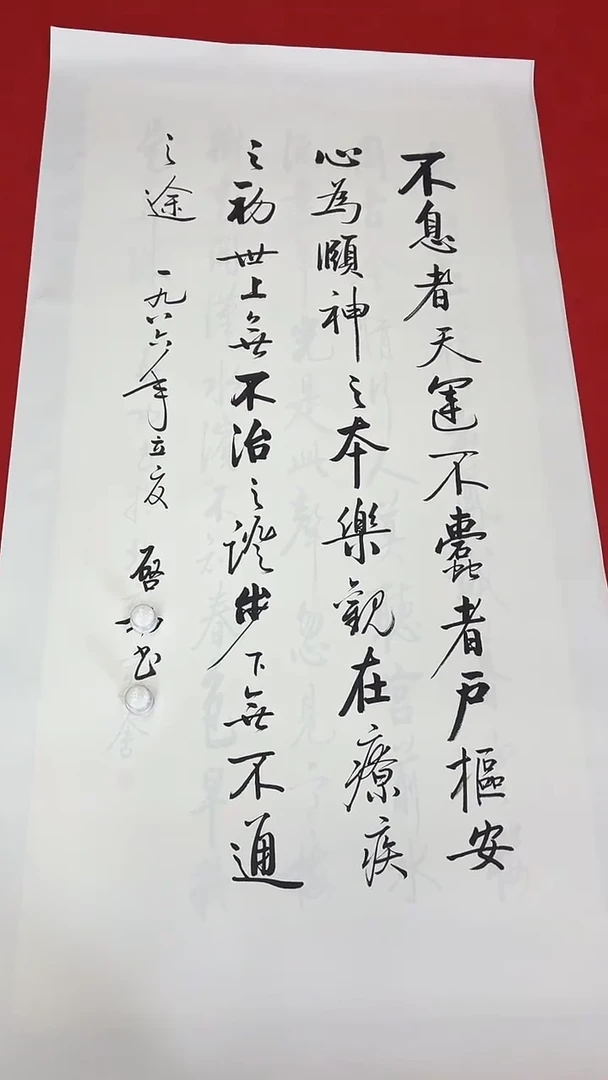 不息者天運不蠹者戶樞安
心為頤神之本樂觀在療疾
之初世上無不治之證步下無不通
之途 一九八六年立夏 啓
书